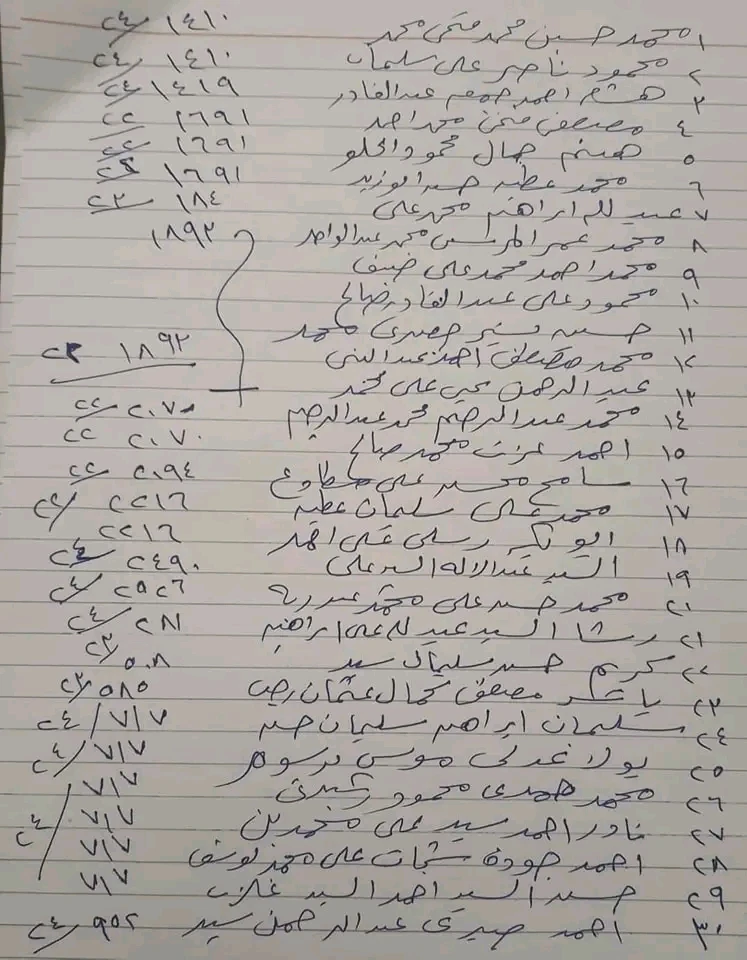 ١ محمد حسين محمد فتحى محمد ١٤١٠ ٢٤/
٢ محمود ناصر على سليمان ١٤١٠ ٢٤/
٣ هشام احمد جمعه عبدالقادر ١٤١٩ ٢٤/
٤ مصطفى فتحى محمد احمد ١٦٩١ ٢٢
٥ هيثم جمال محمود الحلو ١٦٩١ ٢٢
٦ محمد عطيه ١٦٩١ ٢٢
٧ عبدالله ابراهيم محمد على ١٨٤ ٢٣
٨ محمد عمر محمد عبدالواحد ١٨٩٣
٩ محمد احمد محمد على ضيف
١٠ محمود على عبدالقادر صالح
١١ حسين صبرى محمد
١٢ محمد مصطفى احمد عبدالنبى ١٨٩٣ ٢٣
١٣ عبدالرحمن يحيى على محمد
١٤ محمد عبدالرحيم محمد عبدالرحيم ٢٠٧٠ ٢٢
١٥ احمد عزت محمد صالح ٢٠٧٠ ٢٢
١٦ سامح محسن على مطاوع ٢٠٩٤ ٢٢
١٧ محمد على سليمان عطيه ٢٢١٦ ٢٤/
١٨ ابوبكر على احمد ٢٢١٦ ٢٢
١٩ السيد عبدالاله السيد على ٢٤٩٠ ٢٤
٢١ محمد حسن على محمد ٢٥٢٦ ٢٤/
٢١ رشا السيد عبدالله على ابراهيم ٢٨١ ٢٤/
٢٢ كريم حسن سليمان سيد ٥٠٨ ٢٣/
٢٣ مصطفى كمال عثمان ٥٨٥ ٢٣/
٢٤ سليمان ابراهيم سليمان حسن ٧١٧ / ٢٤
٢٥ بولا عدلى موسى برسوم ٧١٧ / ٢٤
٢٦ محمد حمدى محمود رشيدى ٧١٧
٢٧ نادر احمد سيد على ٧١٧ / ٢٤
٢٨ احمد جودة شحات على محمد يوسف ٧١٧
٢٩ حسن السيد احمد السيد ٧١٧
٣٠ احمد صبرى عبدالرحمن سيد ٩٥٢ ٢٤/